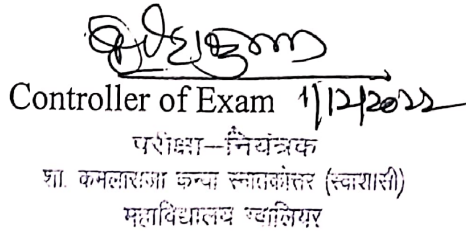 Controller of Exam 1/12/2022
परीक्षा–नियंत्रक
शा. कमलाराजा कन्या स्नातकोत्तर (स्वाशासी)
महाविद्यालय ग्वालियर